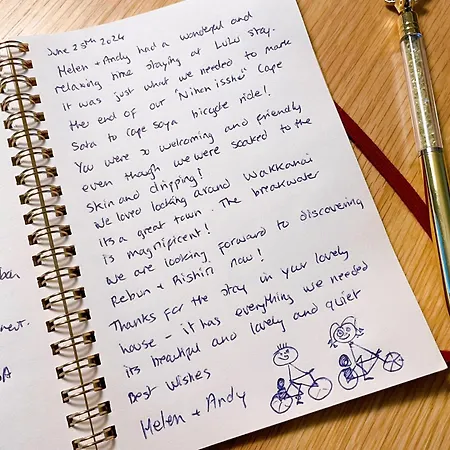 June 25th 2024
Helen + Andy had a wonderful and
relaxing time staying at Lulu stay.
It was just what we needed to mark
the end of our 'Nihon isshu' Cape
Sata to Cape Soya bicycle ride!
You were so welcoming and friendly
even though we were soaked to the
skin and dripping!
We loved looking around Wakkanai
its a great town. The breakwater
is magnificent!
We are looking forward to discovering
Rebun + Rishiri now!
Thanks for the stay in your lovely
house - it has everything we needed
its beautiful and lovely and quiet
Best wishes
Helen + Andy